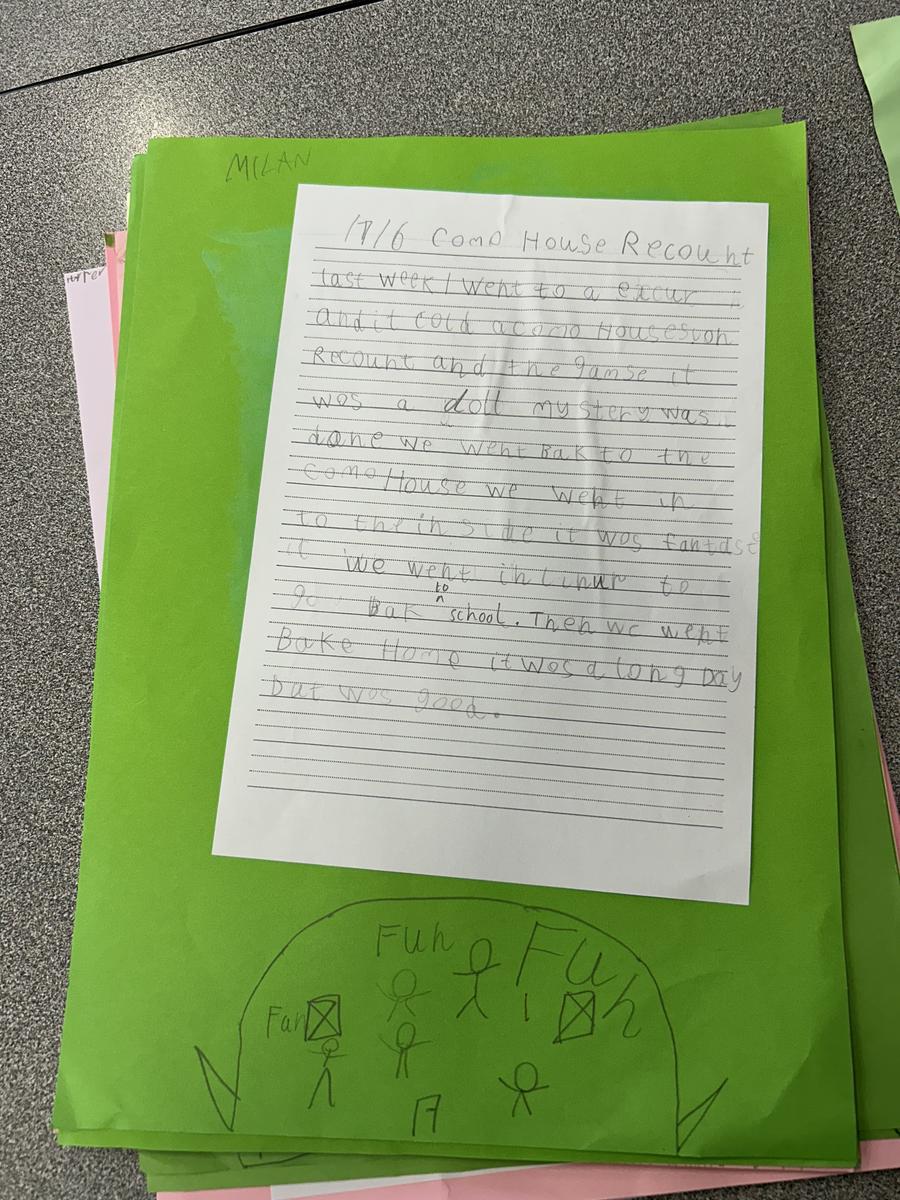 MILAN
17/6 Como House Recount
last week I went to a excur
and it cold a como Housesion
Recount and the gamse it
wos a doll mystery was
done we went Bak to the
como House we went in
to the in side it wos fantast
ic we went in Linur to
go Bak to school. Then we went
Bake Home it wos a long Day
but wos good.
Fun Fun
Fan